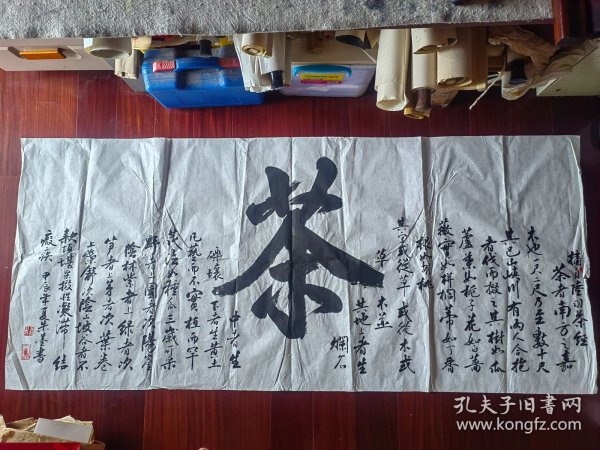 摘陆羽茶经
茶者南方之嘉
木也一尺二尺乃至数十尺
其巴峡川有两人合抱
者伐而掇之其树如瓜
芦叶如栀子花如白蔷
薇实如栟榈蒂如丁香
根如胡桃
其字或从草或从木或
草木并
其地上者生
烂石
茶
中者生
砾壤下者生黄土
凡艺而不实植而罕
茂法如种瓜三岁可采
野者上园者次阳崖
阴林紫者上绿者次
笋者上芽者次叶卷
上叶舒次阴山坡谷者不
堪采掇性凝滞结
瘕疾甲辰年夏
孔夫子旧书网
www.kongfz.com